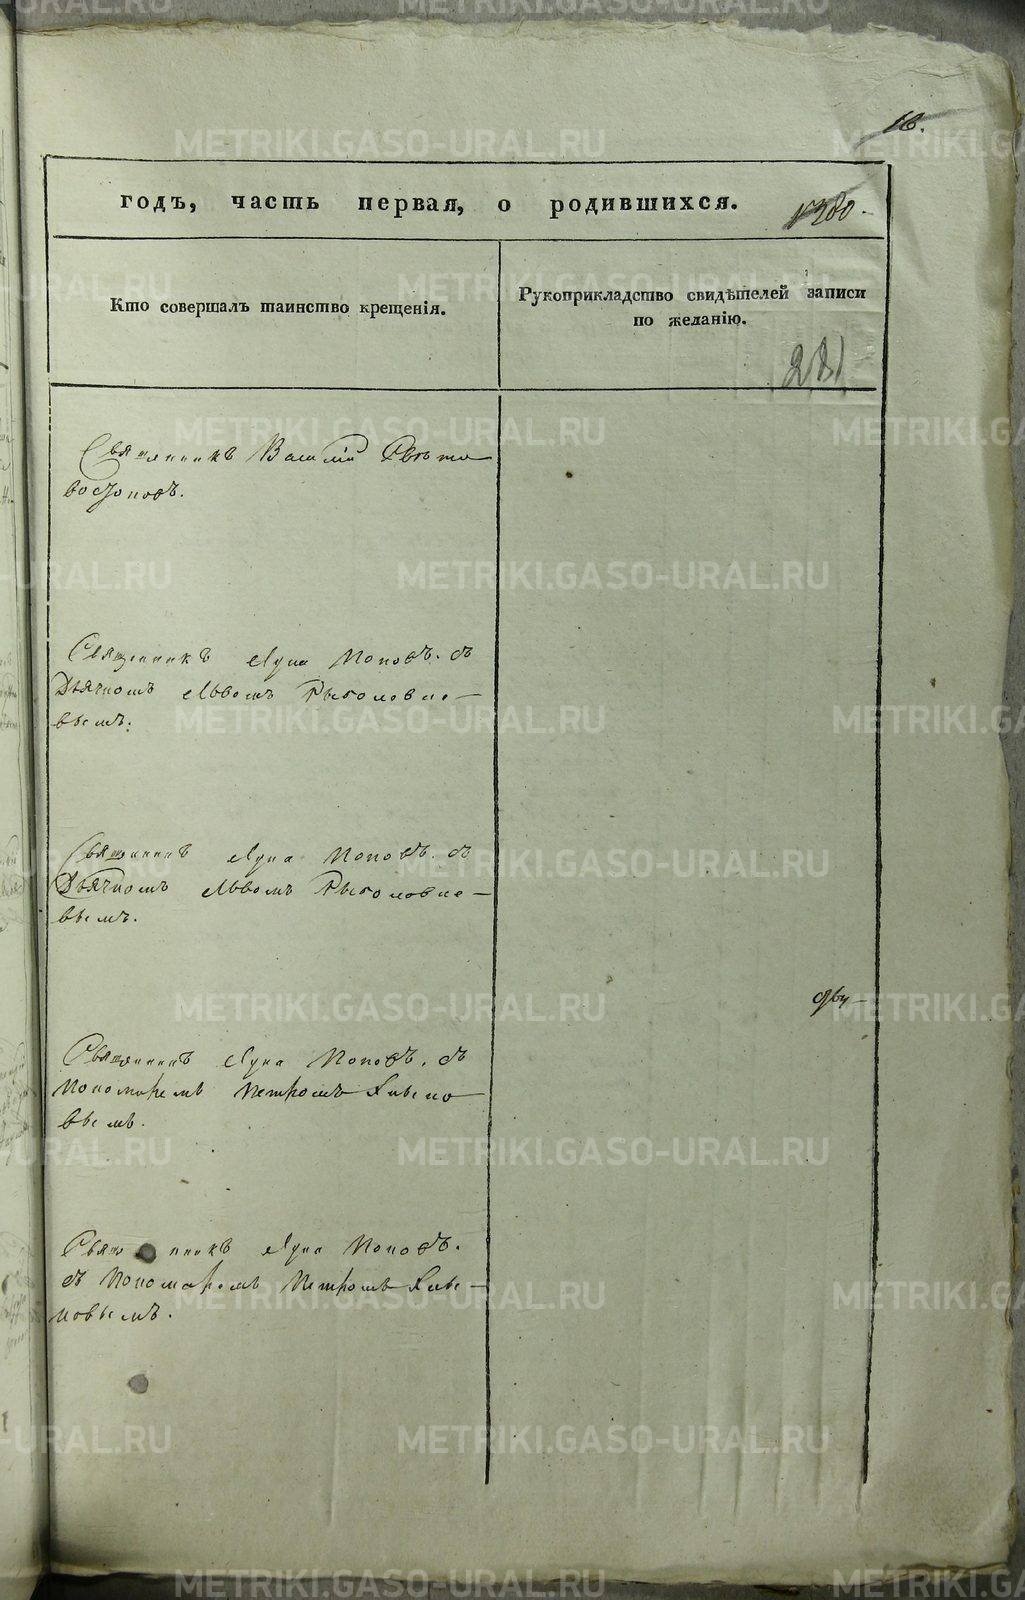 16.
годъ, часть первая, о родившихся.
280.
Кто совершалъ таинство крещенія.
Рукоприкладство свидѣтелей записи
по желанію.
281
Священникъ Василій Свѣто
возоровъ.
Священникъ Лука Поповъ. съ
Дьячкомъ Львомъ
вымъ.
Священникъ Лука Поповъ. съ
Дьячкомъ Львомъ
вымъ.
Священникъ Лука Поповъ. съ
Пономаремъ Петромъ
вымъ.
Священникъ Лука Поповъ.
съ Пономаремъ Петромъ
новымъ.
METRIKI.GASO-URAL.RU